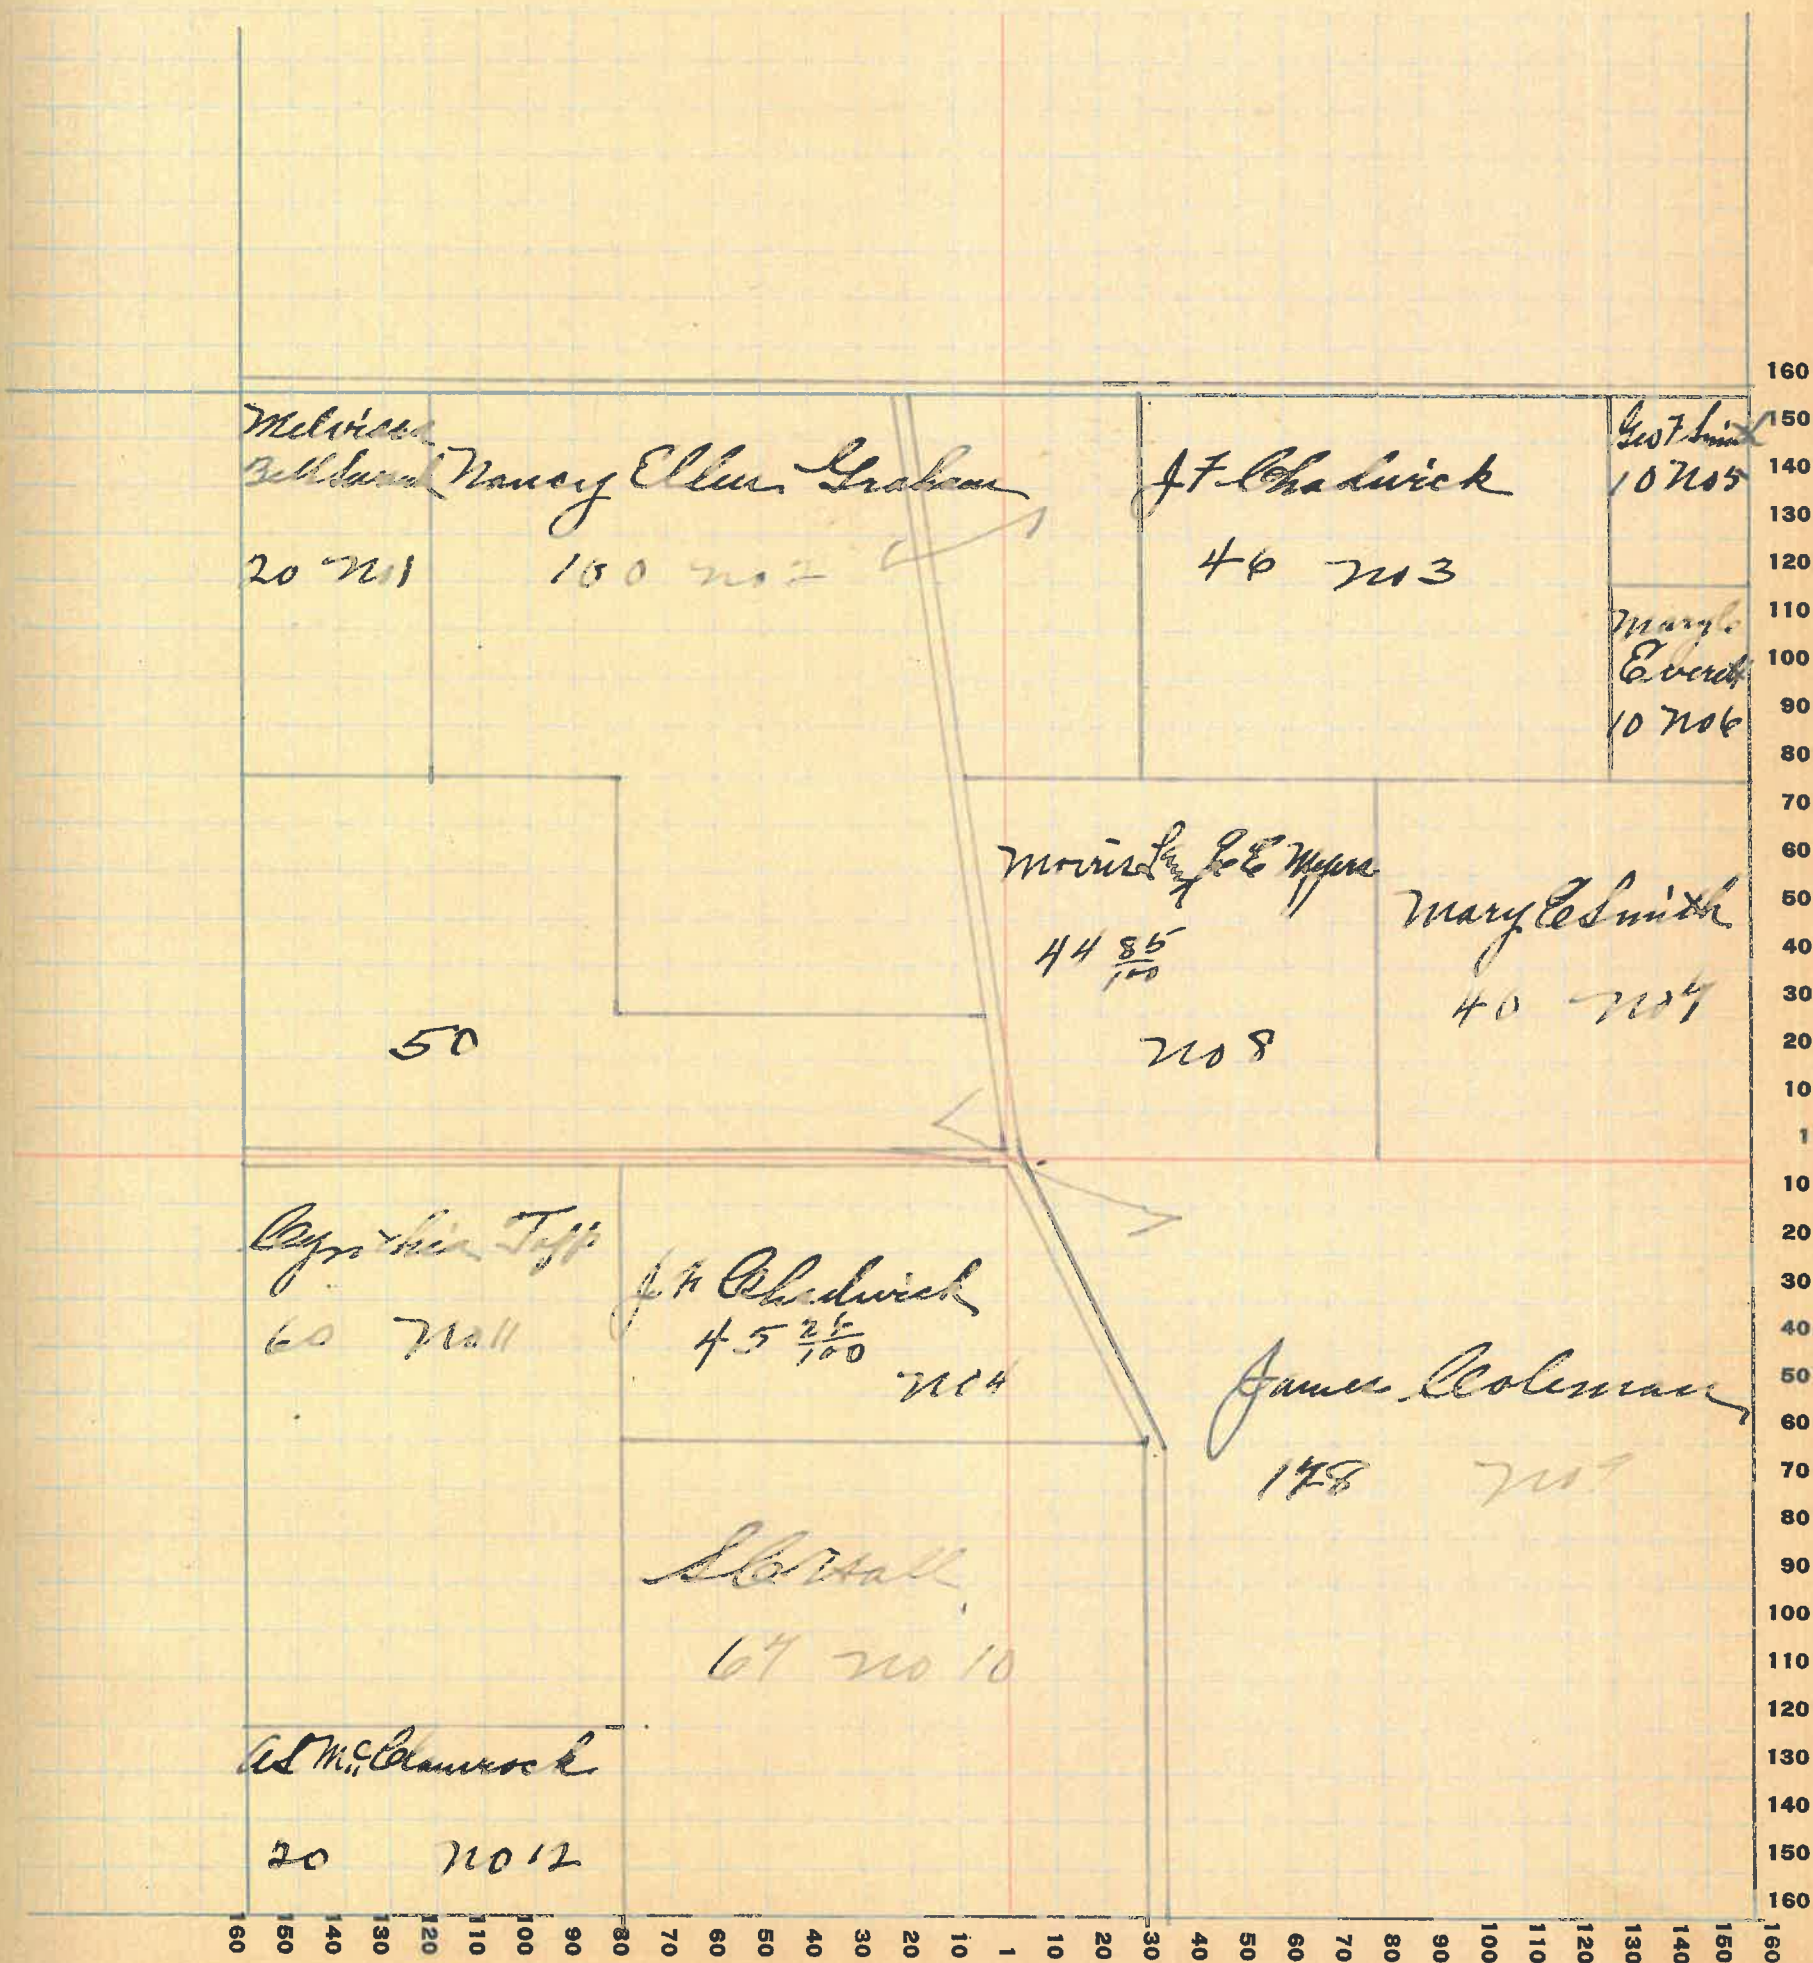 Nancy Ellen Graham
100 No 2
20 No 1
J F Chadwick
46 No 3
Geo F Smith
10 No 5
Mary
Everett
10 No 6
50
Morris E E Myers
44 85/100
No 8
Mary C Smith
40 No 7
Cynthia
60 No 11
J F Chadwick
45 26/100
No 4
James Coleman
178 No 9
S C Hall
67 No 10
A S McClamrock
20 No 12
160
150
140
130
120
110
100
90
80
70
60
50
40
30
20
10
1
10
20
30
40
50
60
70
80
90
100
110
120
130
140
150
160
160 150 140 130 120 110 100 90 80 70 60 50 40 30 20 10 1 10 20 30 40 50 60 70 80 90 100 110 120 130 140 150 160